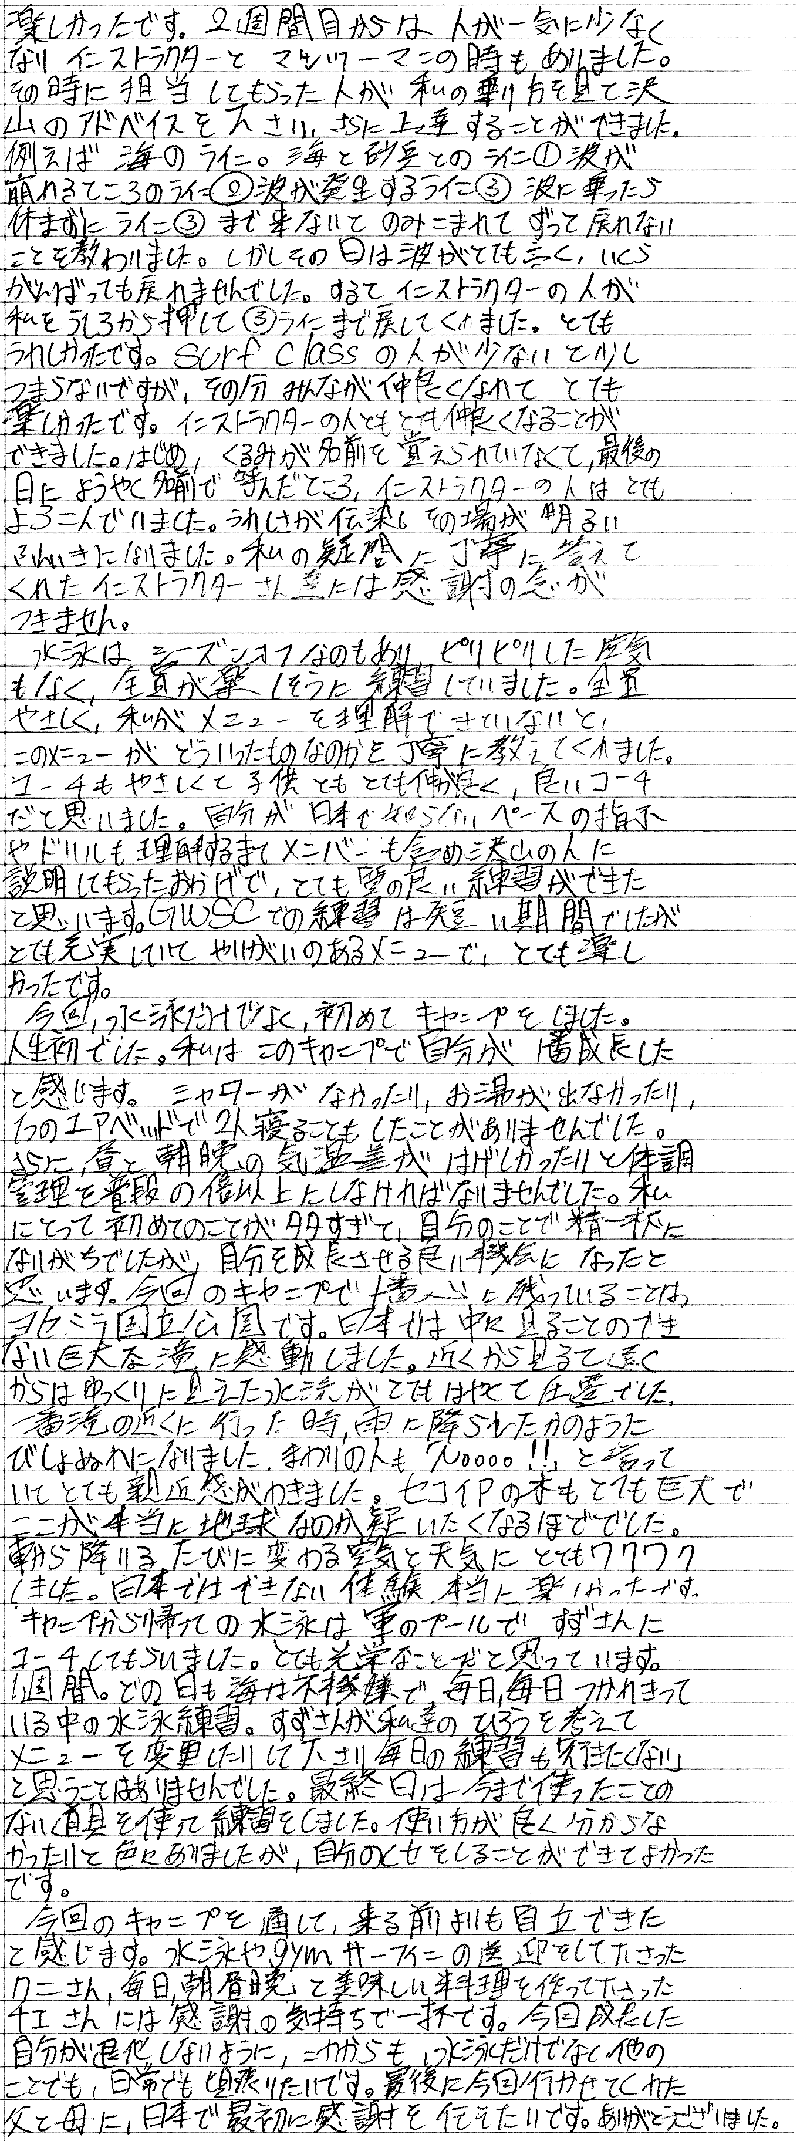 楽しかったです。2週間目からは人が一気に少なく
なりインストラクターとマンツーマンの時もありました。
その時に担当してもらった人が私の乗り方を見て沢
山のアドバイスを下さり、さらに上達することができました。
例えば海のライン。海と砂浜とのライン①波が
崩れるところのライン②波が発生するライン③波に乗ったら
休まずにライン③まで来ないとのみこまれてずって戻れない
ことを教わりました。しかしその日は波がとても高く、いくら
がんばっても戻れませんでした。するとインストラクターの人が
私をうしろから押して③ラインまで戻してくれました。とても
うれしかったです。Surf Classの人が少ないと少し
つまらないですが、その分みんなが仲良くなれてとても
楽しかったです。インストラクターの人ともとても仲良くなることが
できました。はじめ、くるみが名前を覚えられていなくて、最後の
日にようやく名前で呼んだところ、インストラクターの人はとても
よろこんでいました。うれしさが伝染しその場が明るい
ふんいきになりました。私の疑問に丁寧に答えて
くれたインストラクターさん達には感謝の念が
つきません。
水泳はシーズンオフなのもありピリピリした空気
もなく、全員が楽しそうに練習していました。全員
やさしく、私がメニューを理解できていないと、
このメニューがどういったものなのかを丁寧に教えてくれました。
コーチもやさしくて子供ともとても仲が良く、良いコーチ
だと思いました。自分が日本で知らないペースの指示
やドリルも理解するまでメンバーも含め沢山の人に
説明してもらったおかげで、とても質の良い練習ができた
と思います。GWSCでの練習は短い期間でしたが
とても充実していてやりがいのあるメニューで、とても楽し
かったです。
今回、水泳だけでなく、初めてキャンプをしました。
人生初でした。私はこのキャンプで自分が1番成長した
と感じます。シャワーがなかったり、お湯が出なかったり、
1つのエアベッドで2人寝ることもしたことがありませんでした。
さらに、昼と朝晩の気温差がはげしかったりと体調
管理を普段の倍以上にしなければなりませんでした。私
にとって初めてのことが多すぎて、自分のことで精一杯に
なりがちでしたが、自分を成長させる良い機会になったと
思います。今回のキャンプで1番心に残っていることは、
ヨセミテ国立公園です。日本では中々見ることのでき
ない巨大な滝に感動しました。近くから見ると遠く
からはゆっくりに見えた水流がとてもはやくて圧巻でした。
一番滝の近くに行った時、雨に降られたかのように
びしょぬれになりました。まわりの人も「Noooo!!」と言って
いてとても親近感がわきました。セコイアの木もとても巨大で
ここが本当に地球なのか疑いたくなるほどでした。
車から降りるたびに変わる空気と天気にとてもワクワク
しました。日本ではできない体験本当に楽しかったです。
キャンプから帰っての水泳は軍のプールですずさんに
コーチしてもらいました。とても光栄なことだと思っています。
1週間。どの日も海は不機嫌で、毎日、毎日つかれきって
いる中の水泳練習。すずさんが私達のひろうを考えて
メニューを変更したりして下さり毎日の練習も「行きたくない」
と思うことはありませんでした。最終日は今まで使ったことの
ない道具を使って練習をしました。使い方が良く分からな
かったりと色々ありましたが、自分のくせをしることができてよかった
です。
今回のキャンプを通して、来る前よりも自立できた
と感じます。水泳やgym サーフィンの送迎をして下さった
クニさん、毎日、朝昼晩と美味しい料理を作って下さった
チエさんには感謝の気持ちで一杯です。今回成長した
自分が退化しないように、これからも、水泳だけでなく他の
ことでも、日常でも頑張りたいです。最後に今回行かせてくれた
父と母に、日本で最初に感謝を伝えたいです。ありがとうございました。